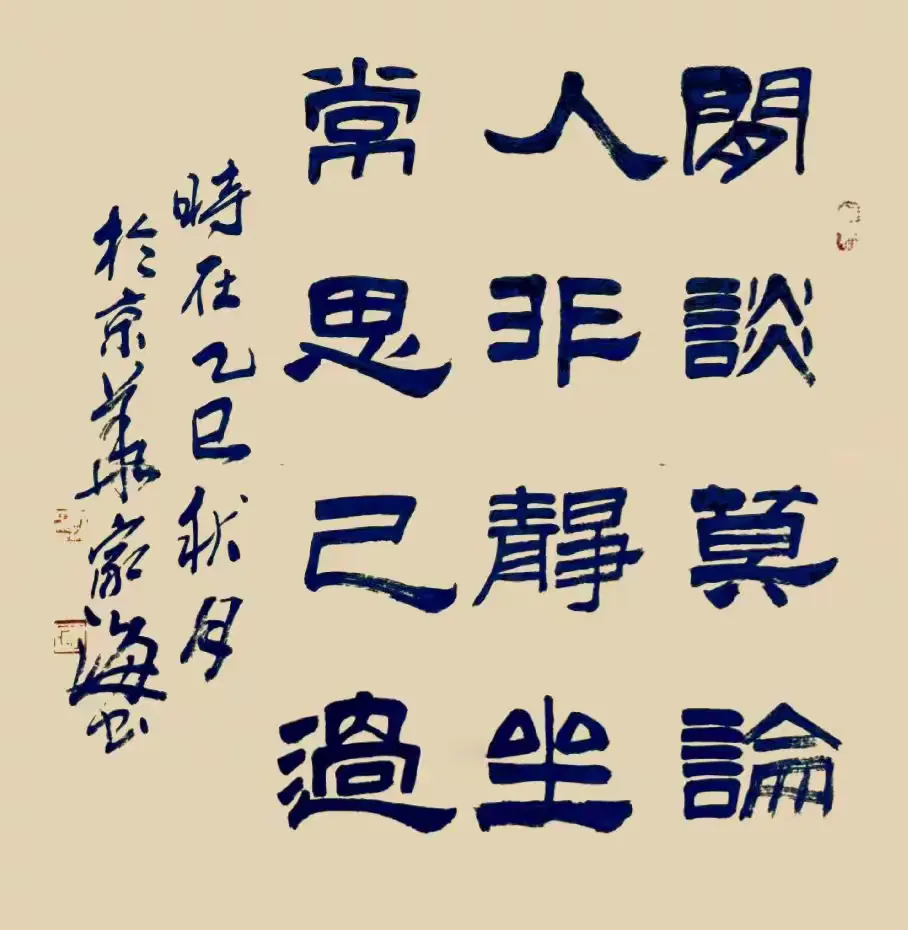 閒談莫論
人非靜坐
常思己過
時在乙巳秋月
於京華家海书